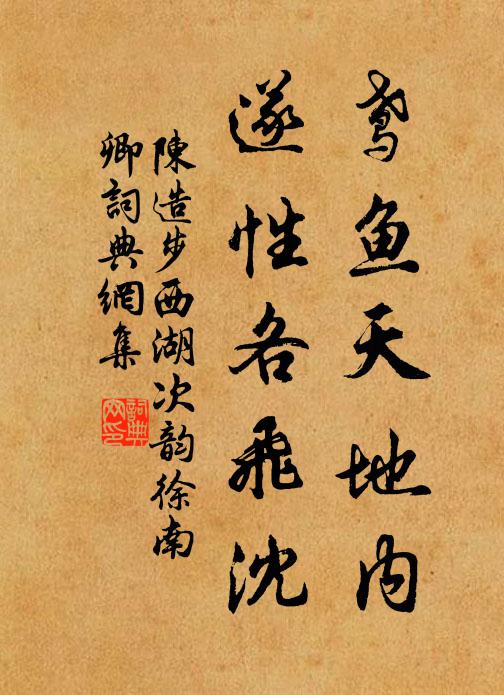 鸢鱼天地内
遂性各飛沈
陳造步西湖次韵徐南
卿詞典網集
詞典
网印